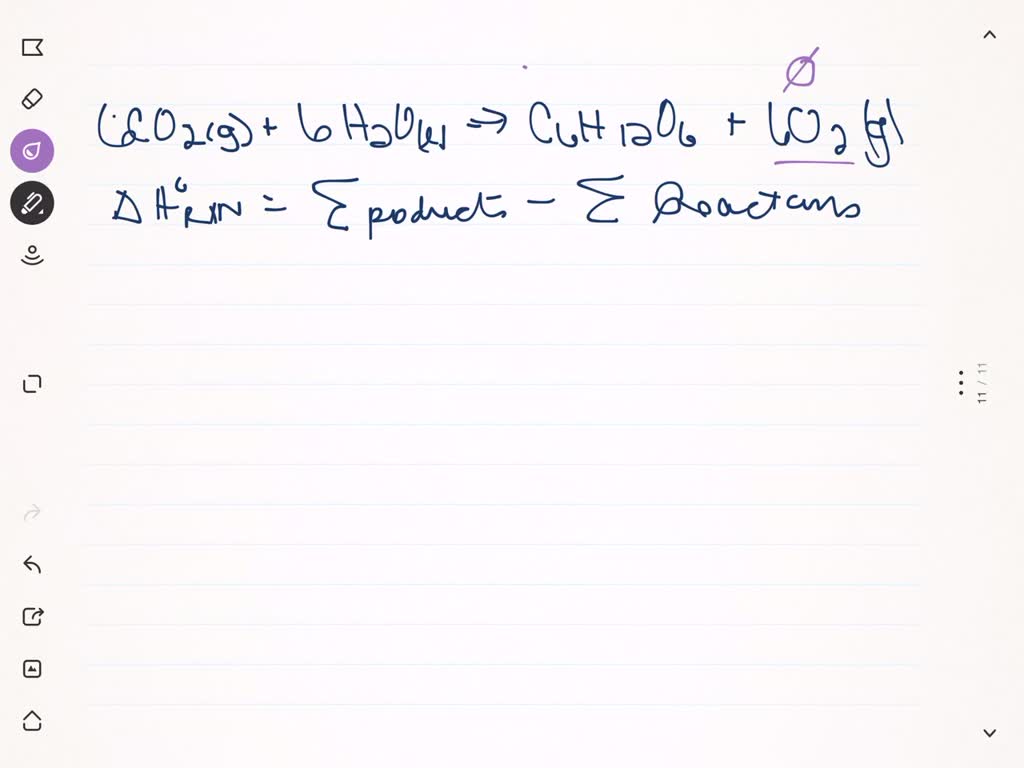 Ø
6CO2(g) + 6H2O(l) → C6H12O6 + 6O2(g)
ΔH°RXN = Σ poducts - Σ Reactans
11 / 11